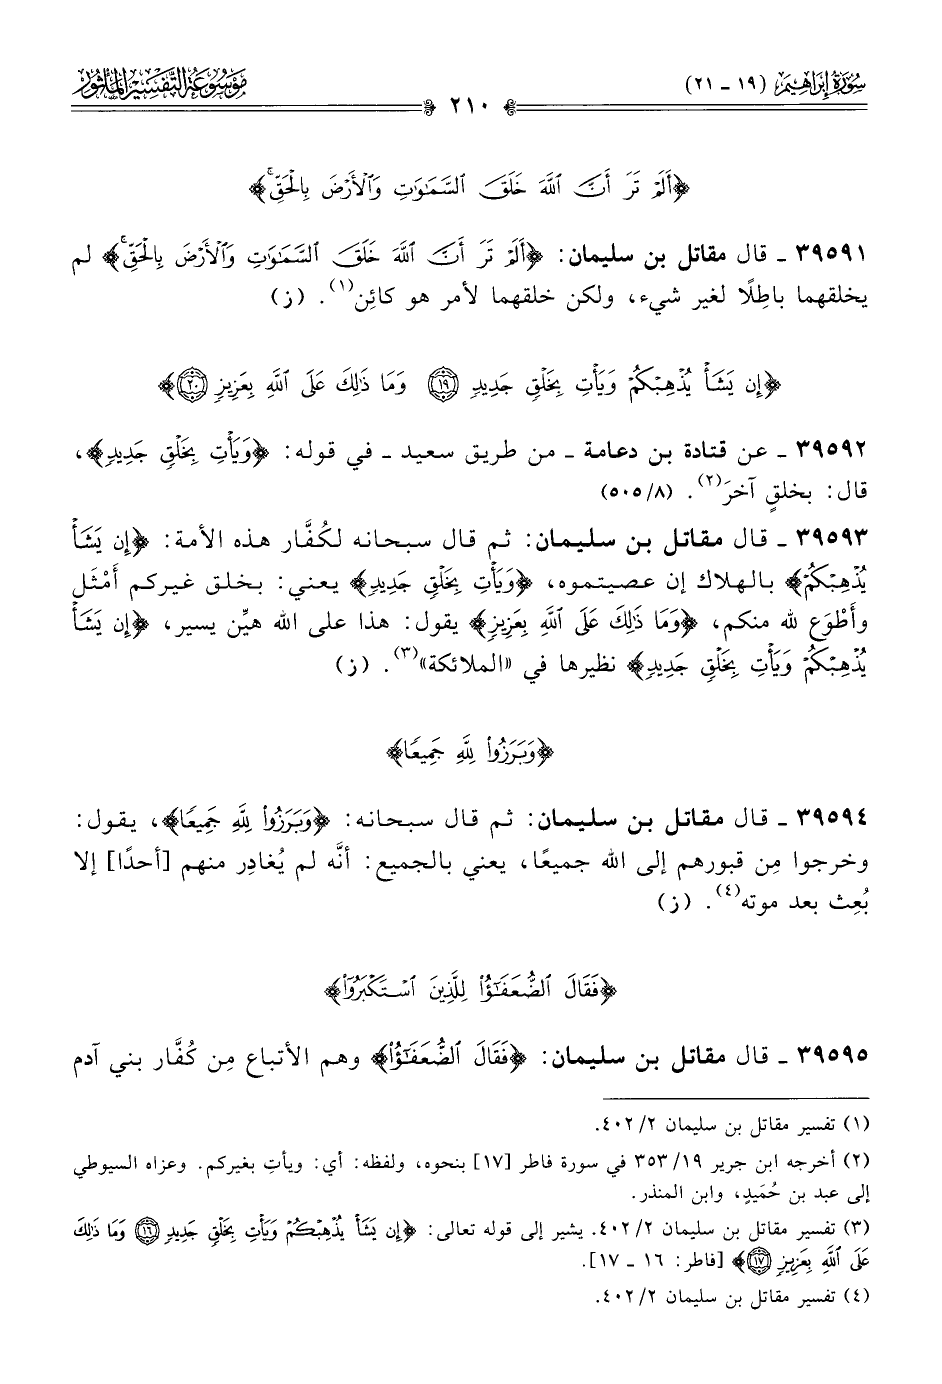 سُورَةُ إِبْرَاهِيم (١٩ - ٢١)
٢١٠
مَوْسُوعَةُ التَّفْسِيرِ المَأْثُور
﴿أَلَمْ تَرَ أَنَّ ٱللَّهَ خَلَقَ ٱلسَّمَٰوَٰتِ وَٱلْأَرْضَ بِٱلْحَقِّۚ﴾
٣٩٥٩١ - قال مقاتل بن سليمان: ﴿أَلَمْ تَرَ أَنَّ ٱللَّهَ خَلَقَ ٱلسَّمَٰوَٰتِ وَٱلْأَرْضَ بِٱلْحَقِّۚ﴾ لم
يخلقهما باطِلًا لغير شيء، ولكن خلقهما لأمر هو كائِن(١). (ز)
﴿إِن يَشَأْ يُذْهِبْكُمْ وَيَأْتِ بِخَلْقٍ جَدِيدٍ ١٩ وَمَا ذَٰلِكَ عَلَى ٱللَّهِ بِعَزِيزٍ ٢٠﴾
٣٩٥٩٢ - عن قتادة بن دعامة - من طريق سعيد - في قوله: ﴿وَيَأْتِ بِخَلْقٍ جَدِيدٍ﴾،
قال: بخلقٍ آخرَ(٢). (٨/ ٥٠٥)
٣٩٥٩٣ - قال مقاتل بن سليمان: ثم قال سبحانه لكُفَّار هذه الأمة: ﴿إِن يَشَأْ
يُذْهِبْكُمْ﴾ بالهلاك إن عصيتموه، ﴿وَيَأْتِ بِخَلْقٍ جَدِيدٍ﴾ يعني: بخلق غيركم أَمْثَل
وأَطْوَع لله منكم، ﴿وَمَا ذَٰلِكَ عَلَى ٱللَّهِ بِعَزِيزٍ﴾ يقول: هذا على الله هيِّن يسير، ﴿إِن يَشَأْ
يُذْهِبْكُمْ وَيَأْتِ بِخَلْقٍ جَدِيدٍ﴾ نظيرها في «الملائكة»(٣). (ز)
﴿وَبَرَزُوا۟ لِلَّهِ جَمِيعًا﴾
٣٩٥٩٤ - قال مقاتل بن سليمان: ثم قال سبحانه: ﴿وَبَرَزُوا۟ لِلَّهِ جَمِيعًا﴾، يقول:
وخرجوا مِن قبورهم إلى الله جميعًا، يعني بالجميع: أنَّه لم يُغادِر منهم [أحدًا] إلا
بُعِث بعد موته(٤). (ز)
﴿فَقَالَ ٱلضُّعَفَٰٓؤُا۟ لِلَّذِينَ ٱسْتَكْبَرُوٓا۟﴾
٣٩٥٩٥ - قال مقاتل بن سليمان: ﴿فَقَالَ ٱلضُّعَفَٰٓؤُا۟﴾ وهم الأتباع مِن كُفَّار بني آدم
(١) تفسير مقاتل بن سليمان ٢/ ٤٠٢.
(٢) أخرجه ابن جرير ١٩/ ٣٥٣ في سورة فاطر [١٧] بنحوه، ولفظه: أي: ويأتِ بغيركم. وعزاه السيوطي
إلى عبد بن حُمَيدٍ، وابن المنذر.
(٣) تفسير مقاتل بن سليمان ٢/ ٤٠٢. يشير إلى قوله تعالى: ﴿إِن يَشَأْ يُذْهِبْكُمْ وَيَأْتِ بِخَلْقٍ جَدِيدٍ ١٦ وَمَا ذَٰلِكَ
عَلَى ٱللَّهِ بِعَزِيزٍ ١٧﴾ [فاطر: ١٦ - ١٧].
(٤) تفسير مقاتل بن سليمان ٢/ ٤٠٢.